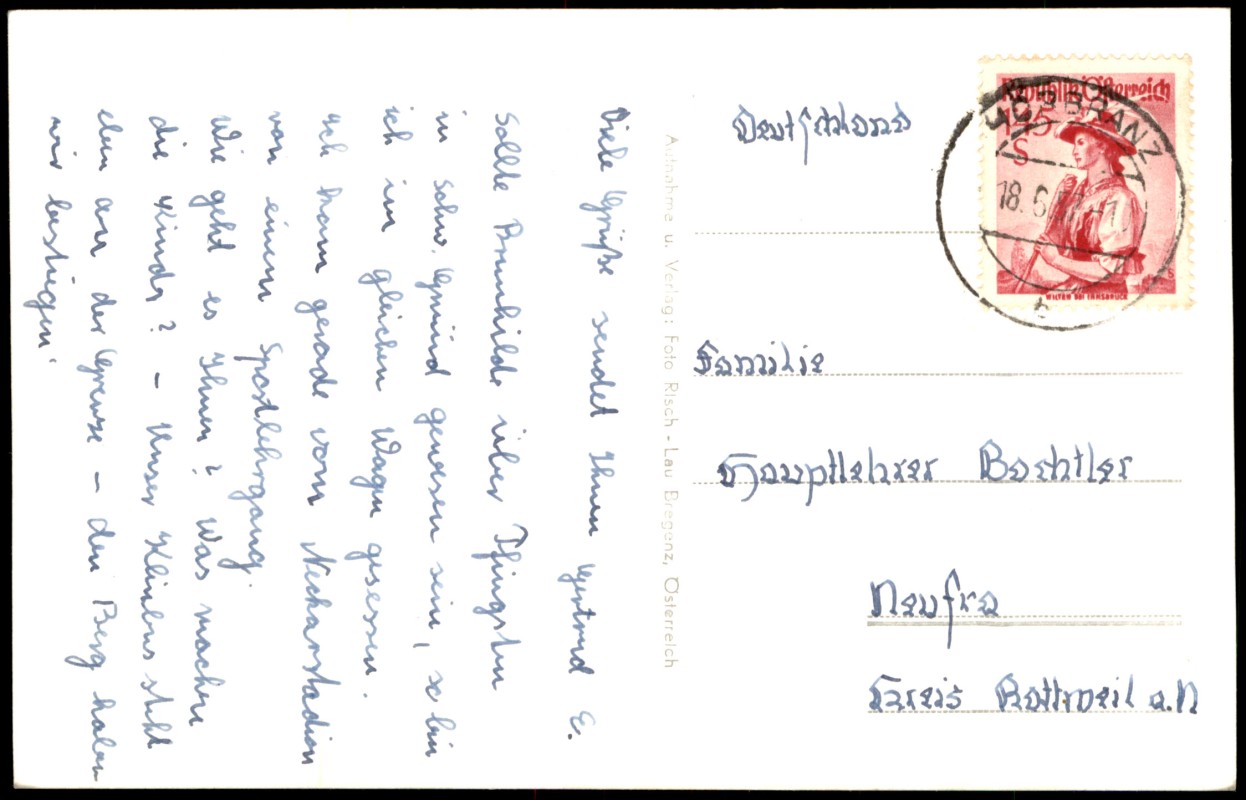 Viele Grüße sendet Ihnen Gertrud E.
Sollte Brunhilde über Pfingsten
in Schw. Gmünd gewesen sein, so bin
ich im gleichen Wagen gesessen.
Ich kam gerade vom Neckarstadion
von einem Sportlehrgang.
Wie geht es Ihnen? Was machen
die Kinder? – Unser Kleinbus steht
oben an der Grenze – den Berg haben
wir bestiegen.
Aufnahme u. Verlag: Foto Risch-Lau Bregenz, Österreich
Republik Österreich
1.45
S
WILTEN BEI INNSBRUCK
18. 6.
Deutschland
Familie
Hauptlehrer Bechtler
Neufra
Kreis Rottweil a.N